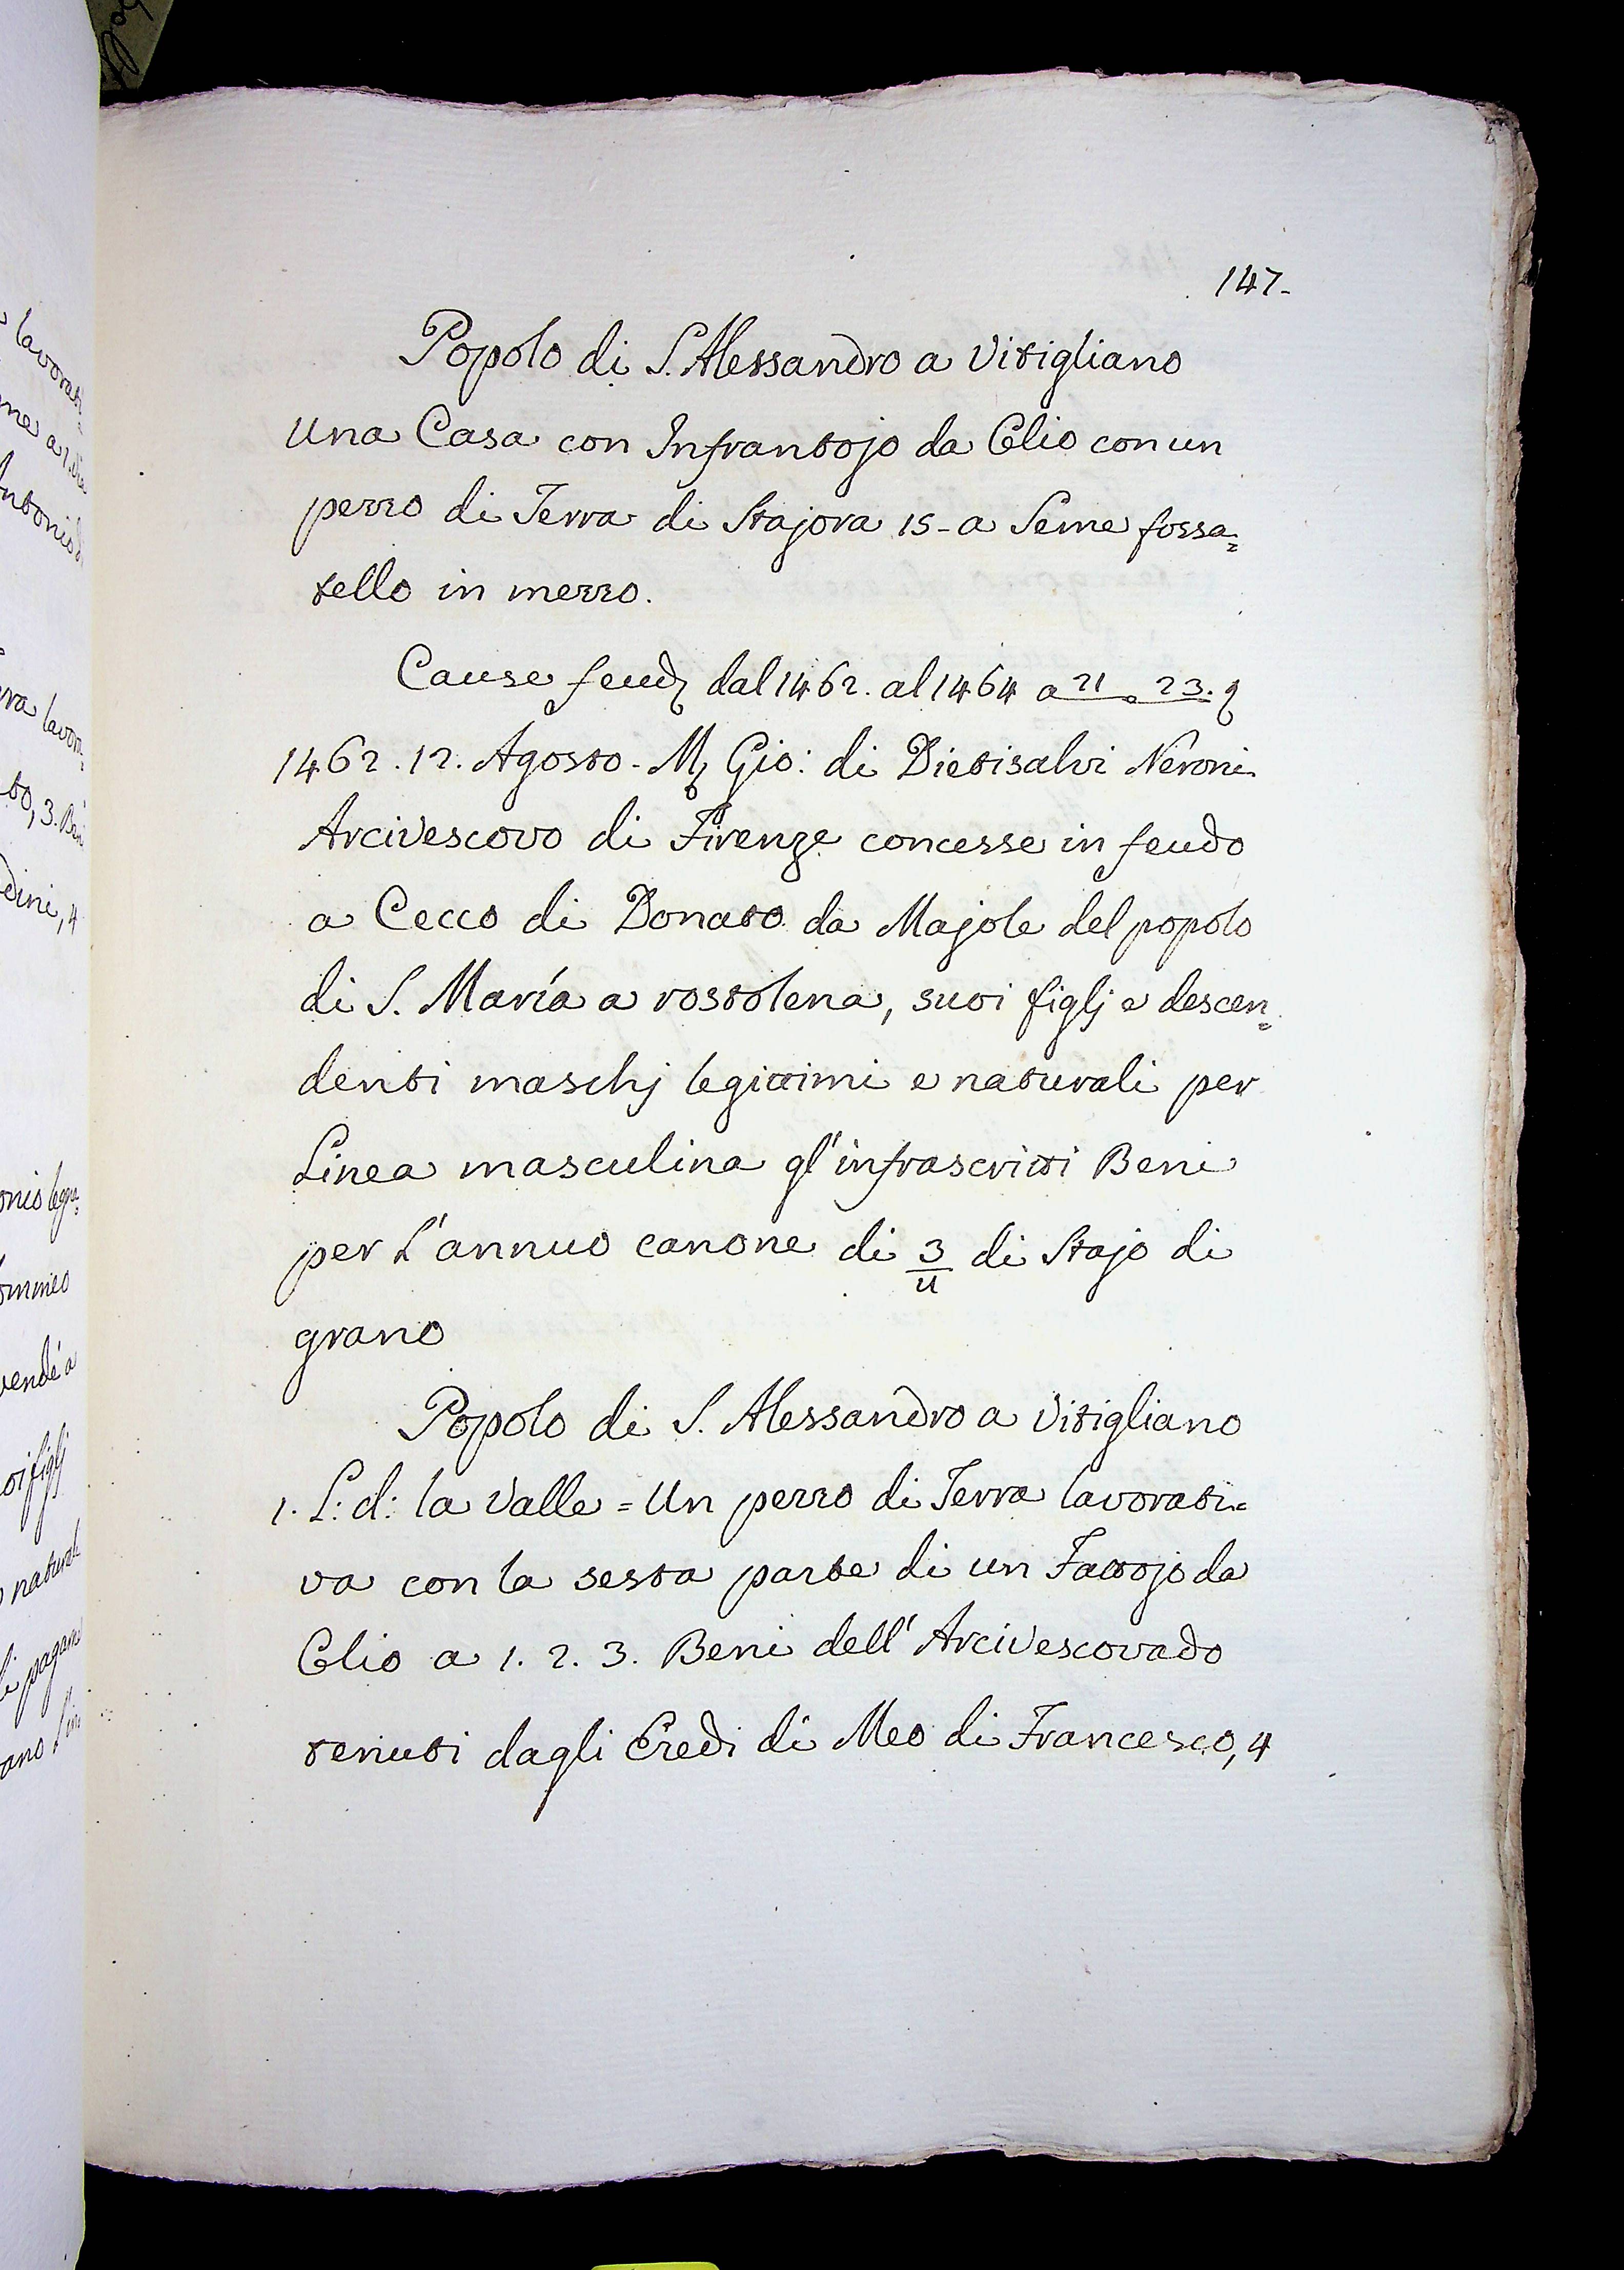 147.
Popolo di S. Alessandro a Vitigliano
Una Casa con Infrantojo da Olio con un
pezzo di Terra di Stajora 15 - a Seme fossa=
tello in mezzo.
Cause feud dal 1462. al 1464 a 21 a 23.
1462. 12. Agosto - M Gio: di Dietisalvi Neroni
Arcivescovo di Firenze concesse in feudo
a Cecco di Donato da Majole del popolo
di S. María a rostolena, suoi figlj e descen=
denti maschj legittimi e naturali per
Linea masculina gl'infrascritti Beni
per L'annuo canone di 3/4 di Stajo di
grano
Popolo di S. Alessandro a Vitigliano
1. L: d: la Valle = Un pezzo di Terra lavorati=
va con la sesta parte di un Fattojo da
Olio a 1. 2. 3. Beni dell'Arcivescovado
tenuti dagli Eredi di Meo di Francesco, 4